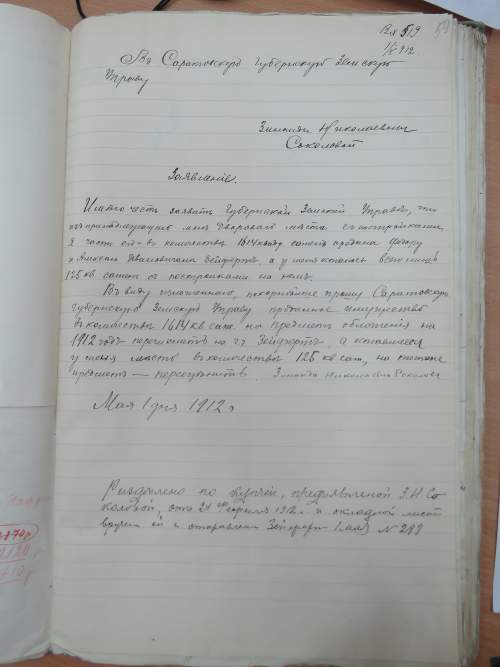 Вх 519
1/V 912
Въ Саратовскую Губернскую Земскую
Управу
Зинаиды Николаевны
Соколовой
Заявленіе.
Имѣю честь заявить Губернской Земской Управѣ, что
изъ принадлежащаго мнѣ двороваго мѣста съ постройками,
я часть его въ количествѣ 1614 квадр. саженъ продала
и Амаліи Ивановнѣ Зейфертъ, а у меня осталось всего лишь
125 кв. сажен съ постройками на немъ.
Въ виду изложеннаго, покорнѣйше прошу Саратовскую
Губернскую Земскую Управу проданное имущество
въ количествѣ 1614 кв саж. на предметъ обложенія на
1912 годъ перечислить на г.г. Зейфертъ, а оставшееся
у меня мѣсто въ количествѣ 125 кв саж, на тотже
предметъ — переоцѣнить. Зинаида Николаевна Соколова
Мая 1 дня 1912 г
Раздѣлено по купчей, предъявленной З.Н. Со
коловой, отъ 24 апрѣля 1912 г. и окладной листъ
врученъ ей и отправленъ Зейфертъ 1 мая № 289